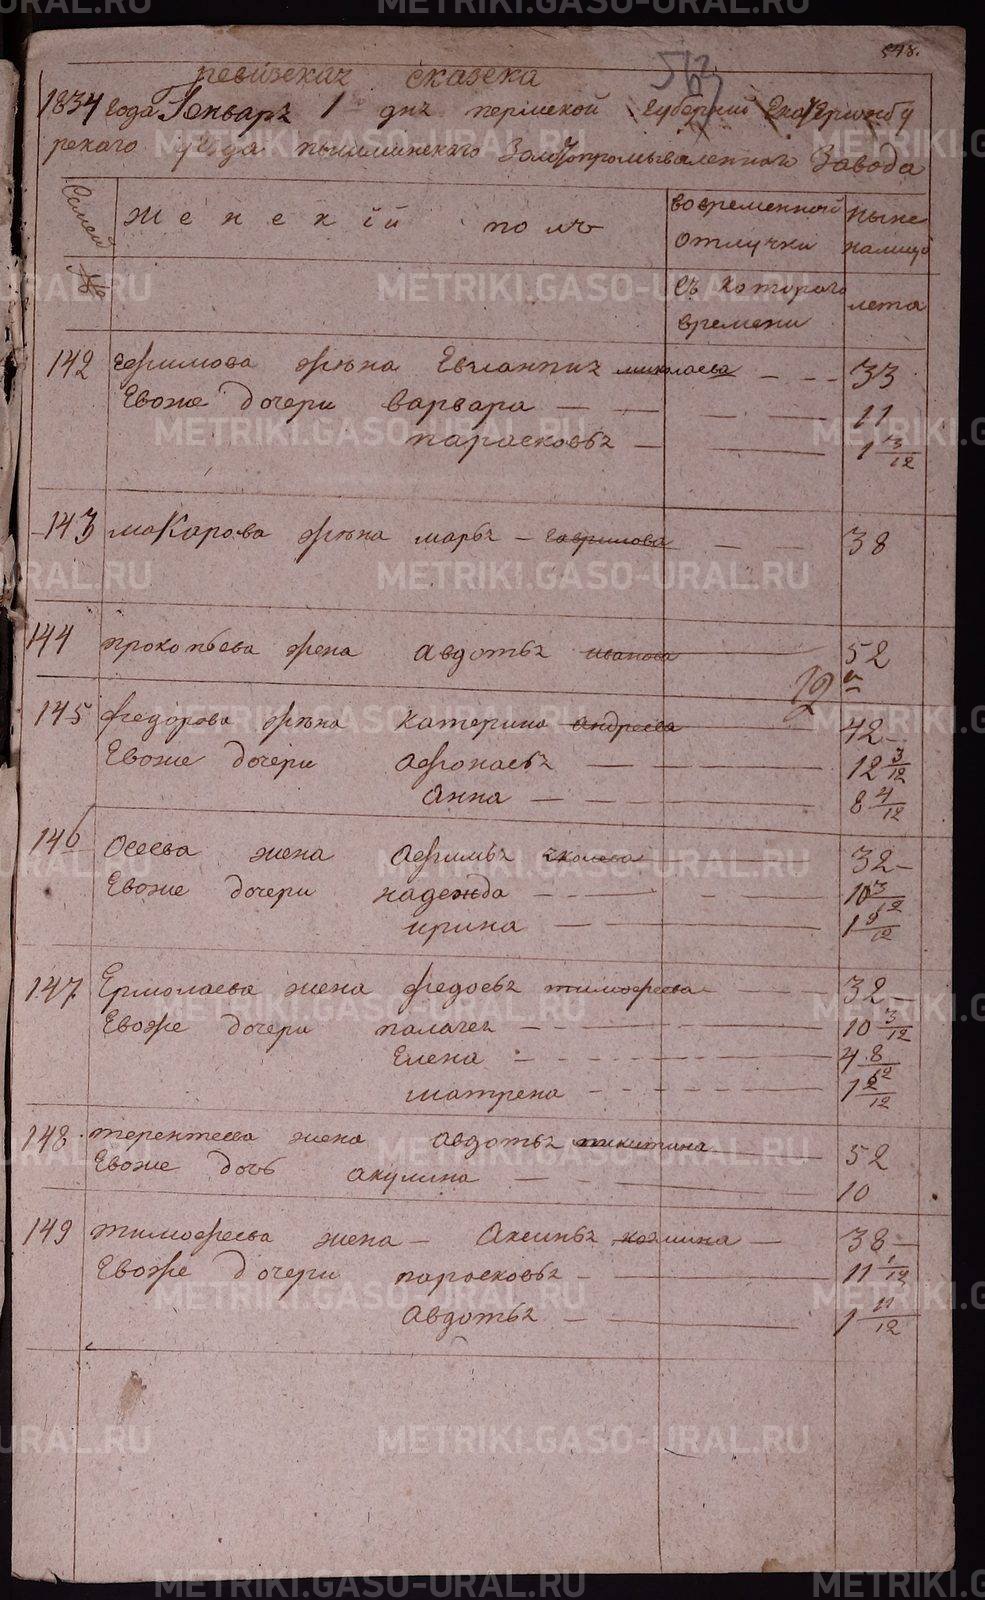 578.
ревизская сказска
1834 года Генваря 1 дня пермской губернии Екатеринбу
рскаго уезда пышминскаго Золотопромываленнаго Завода
Семей № Женский полъ во временной отлучки ныне налицо
съ которого времени лета
142 Ефимова жена Евланпия миколаева 33
Евоже дочери варвара 11
парасковья 1 3/12
143 макарова жена марья гаврилова 38
144 прокопьева жена Авдотья иванова 52
145 федорова жена катерина андреева 42
Евоже дочери Афонасья 12 3/12
Анна 8 4/12
146 Осеева жена Афимья 32
Евоже дочери надежда 10 3/12
ирина 1 9/12
147 Ермолаева жена федосья тимофеева 32
Евоже дочери палагея 10 3/12
Елена 4 8/12
матрена 1 2/12
148 терентеева жена авдотья никитина 52
Евоже дочь акулина 10
149 тимофеева жена Аксинья козмина 38
Евоже дочери парасковья 11 1/12
Авдотья 1 11/12
METRIKI.GASO-URAL.RU